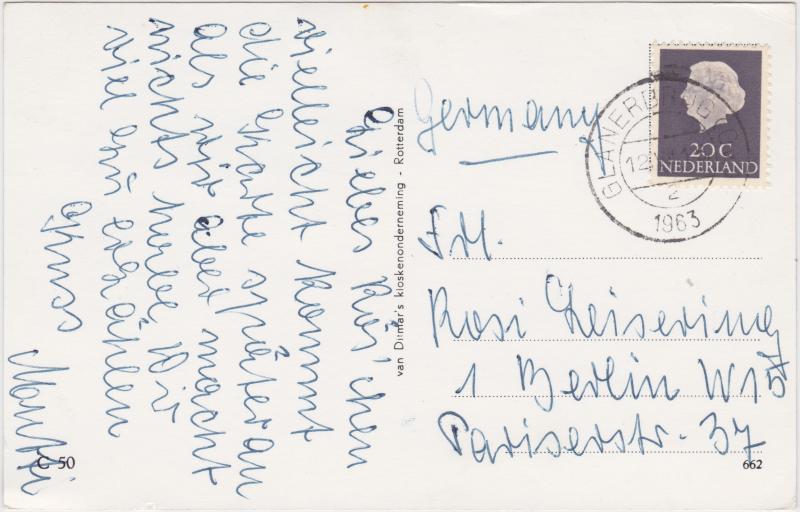 Liebes Rös'chen
vielleicht kommt
die Karte später an
als wir aber macht
nichts haben Dir
viel zu erzählen
Gruss
van Ditmar's kioskenonderneming - Rotterdam
Germany
GLANERBRUG
12
2
1963
20 C
NEDERLAND
Frl.
Rosi
1 Berlin W15
Pariserstr. 37
C 50
662